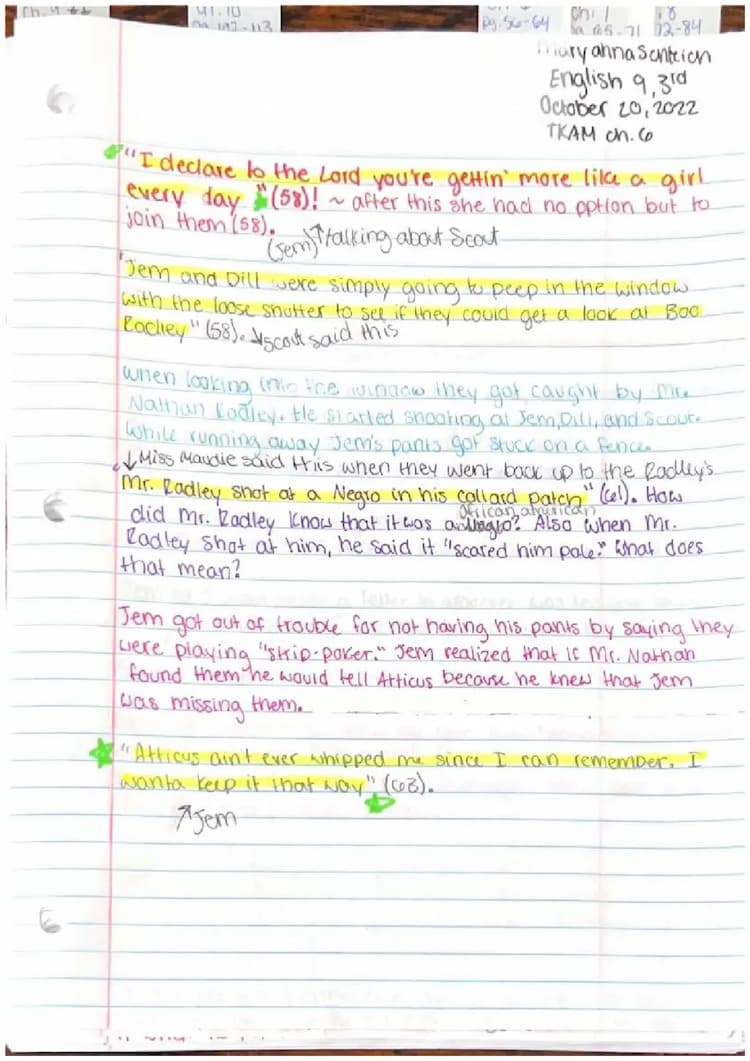 pg. 56-64
72-84
English 9, 3rd
October 20, 2022
TKAM ch. 6
"I declare to the Lord you're gettin' more like a girl
every day "(58)! ~ after this she had no option but to
join them (58).
(Jem) ↑talking about Scout
"Jem and Dill were simply going to peep in the window
with the loose shutter to see if they could get a look at Boo
Radley" (58). ↓scout said this
when looking into the window they got caught by Mr.
Nathan Radley. He started shooting at Jem, Dill, and Scout.
While running away Jem's pants got stuck on a fence.
↓Miss Maudie said this when they went back up to the Radley's
Mr. Radley shot at a Negro in his collard patch" (61). How
African american
did Mr. Radley know that it was a Negro? Also when Mr.
Radley shot at him, he said it "scared him pale." What does
that mean?
Jem got out of trouble for not having his pants by saying they
were playing "strip-poker." Jem realized that if Mr. Nathan
found them he would tell Atticus because he knew that Jem
was missing them.
"Atticus ain't ever whipped me since I can remember. I
wanta keep it that way" (63).
↗Jem